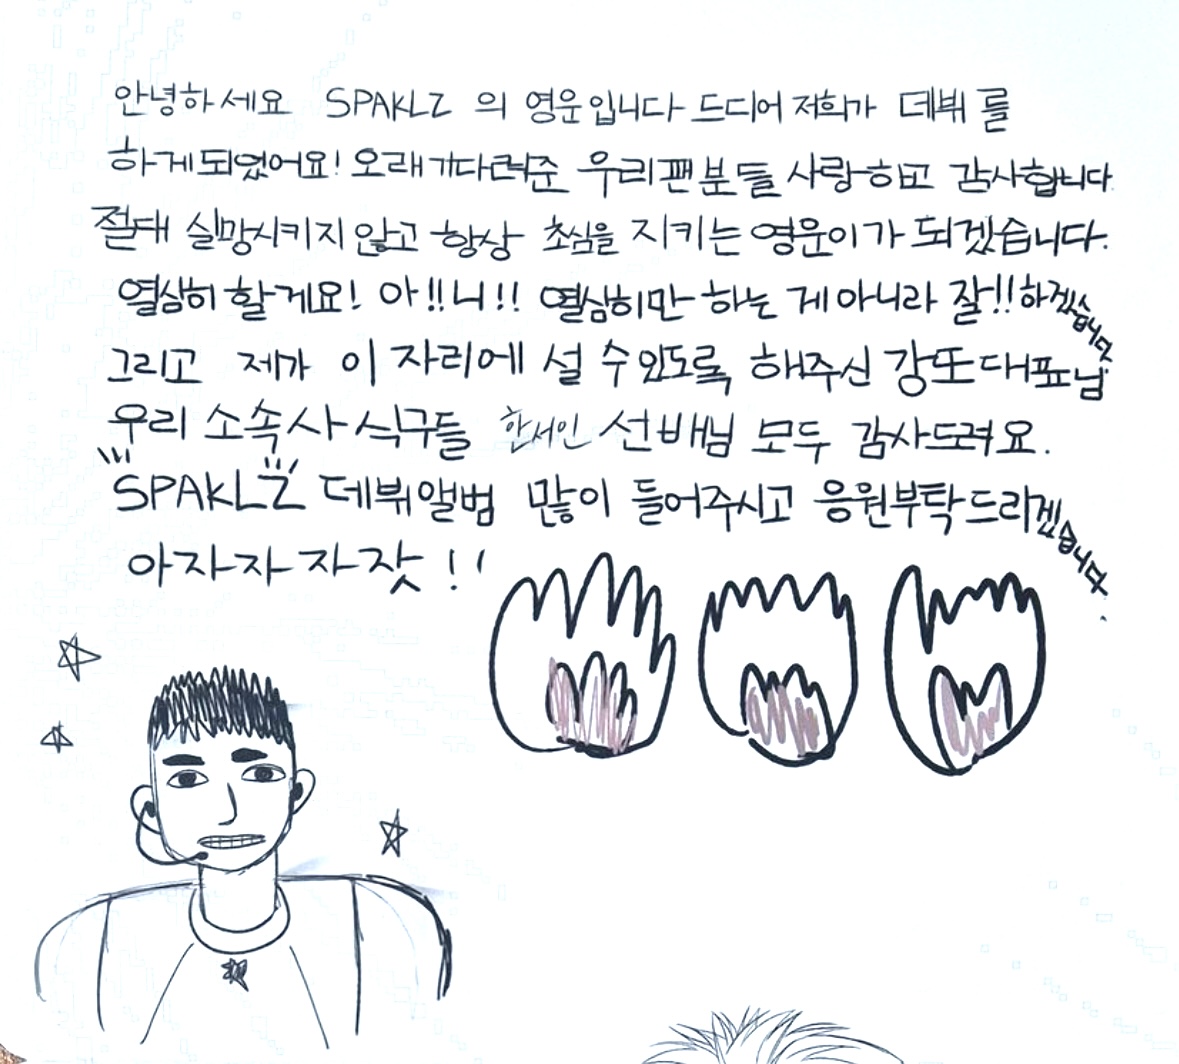 안녕하세요 SPAKLZ 의 영운입니다 드디어 저희가 데뷔를
하게되었어요! 오래 기다려준 우리팬분들 사랑하고 감사합니다
절대 실망시키지 않고 항상 초심을 지키는 영운이가 되겠습니다.
열심히 할게요! 아!!니!! 열심히만 하는 게 아니라 잘!! 하겠습니다
그리고 제가 이 자리에 설 수 있도록 해주신 강또대표님
우리 소속사 식구들 한서인 선배님 모두 감사드려요.
SPAKLZ 데뷔앨범 많이 들어주시고 응원부탁드리겠습니다.
아자자자잣!!